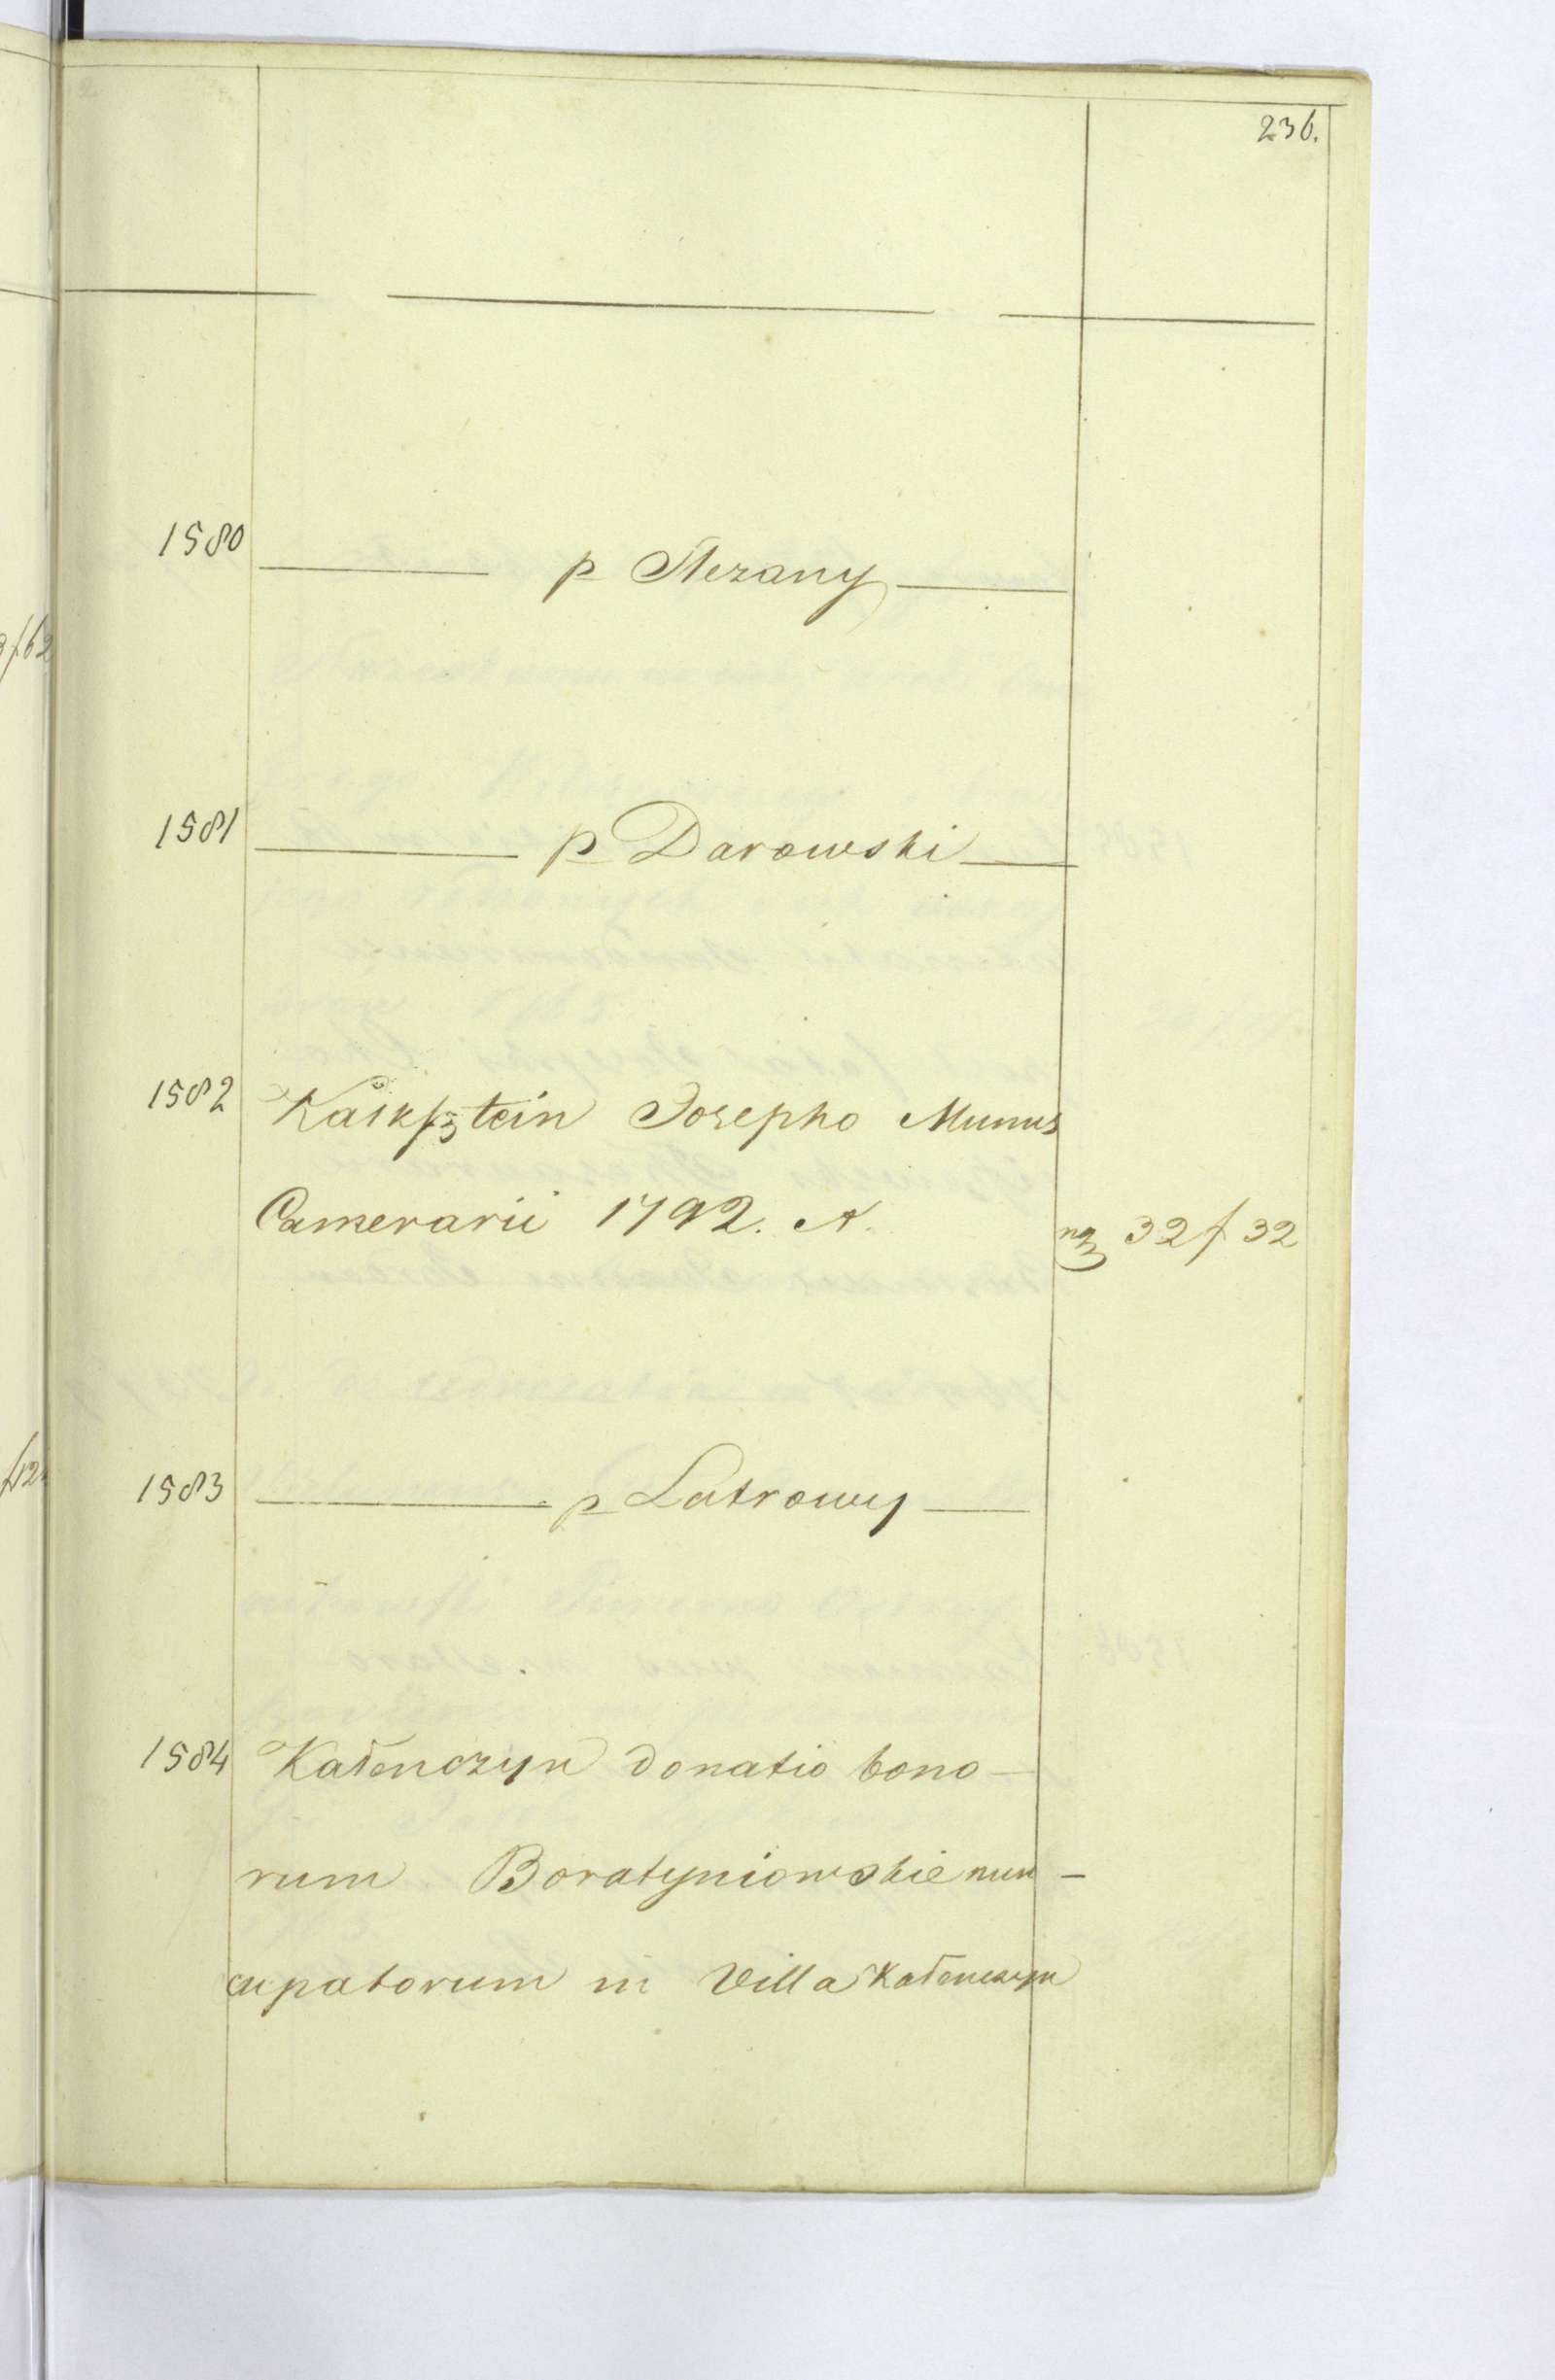 236.
1580 — p Stezany —
1581 — p Darowski —
1582 Kalkßtein Josepho Munus
Camerarii 1792. A. ng 32 f 32
1583 — p Latrowy —
1584 Kałenczyn donatio bono-
rum Boratyniowskie nun-
cupatorum in Villa Kałenczyn